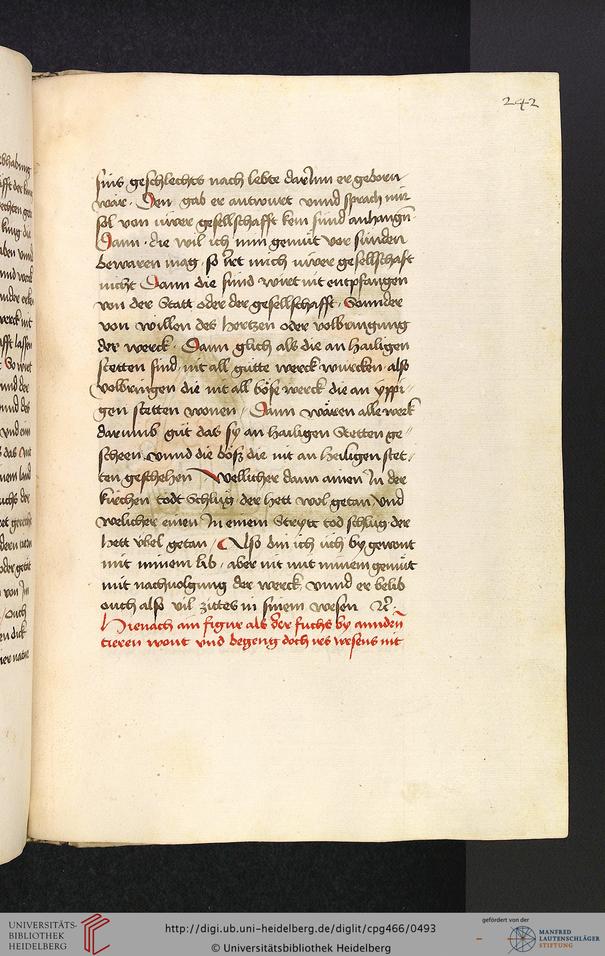 242
sins geschlechts nach lebte darJnn er geborn
wär · Den gab er antwurt vnnd sprach mir
sol von üwer gesellschafft kein sünd anhangn
Dann · die wil ich min gemüt vor sünden
bewaren mag · so Jrret mich üwer gesellschafft
nicht Dann die sünd wirt nit entpfangen
von der Statt oder der gesellschafft · Sonnder
von willen des hertzen oder volbringung
der werck · Dann glich als die an hailigen
stetten sind · nit all gütte werck würcken · also
volbringen die nit all böse werck die an üppi-
gen stetten wonen · Dann wären alle werck
darumb güt das sy an hailigen Stetten ge-
scheen · vnnd die böß die nit an heiligen stet-
ten geschehen Wellicher dann ainen Jn der
kirchen todt Schlüg der hett wol getan Vnd
welicher einen Jn einem Streytt tod schlüg der
hett übel getan · Also bin ich üch by gewont
mit minem lib · aber nit mit minem gemüt
mit nachuolgung der werck vnnd er belib
ouch also vil zittes in sinem wesen
Hienach ain figur als der fuchs by annden
tieren wont vnd begeng doch irs wesens nit
UNIVERSITÄTS-
BIBLIOTHEK
HEIDELBERG
http://digi.ub.uni-heidelberg.de/diglit/cpg466/0493
© Universitätsbibliothek Heidelberg
gefördert von der
MANFRED
LAUTENSCHLÄGER
STIFTUNG